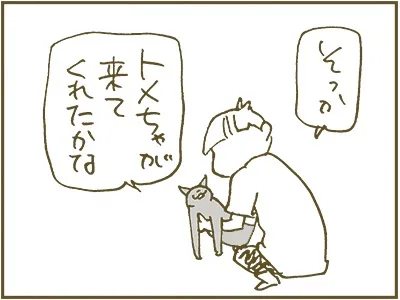 そっか
トメちゃが
来て
くれたかな